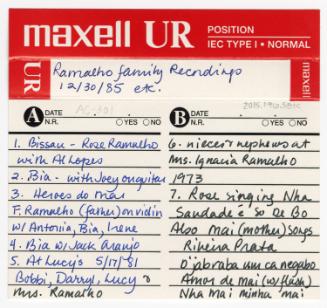 maxell UR
POSITION
IEC TYPE I • NORMAL
UR
Ramalho family Recordings
12/30/85 etc.
maxell
A
DATE
N.R.
YES
NO
AC-301
B
DATE
N.R.
YES
NO
1. Bissau - Rose Ramalho
with Al Lopes
2. Bia - with Joey on guitar
3. Heroes do Mar
F. Ramalho (father) on violin
w/ Antonia, Bia, Irene
4. Bia w/ Jack Araujo
5. At Lucy's 5/17/81
Bobbi, Darryl, Lucy &
Mrs. Ramalho
6. nieces & nephews at
Ms. Ignacia Ramalho
1973
7. Rose singing Nha
Saudade e So De Bo
Also Mai (mother) songs
Ribeira Prata
O'jobraba um ca negabo
Amor de Mai (w/ Hash)
Nha Mai minha mai